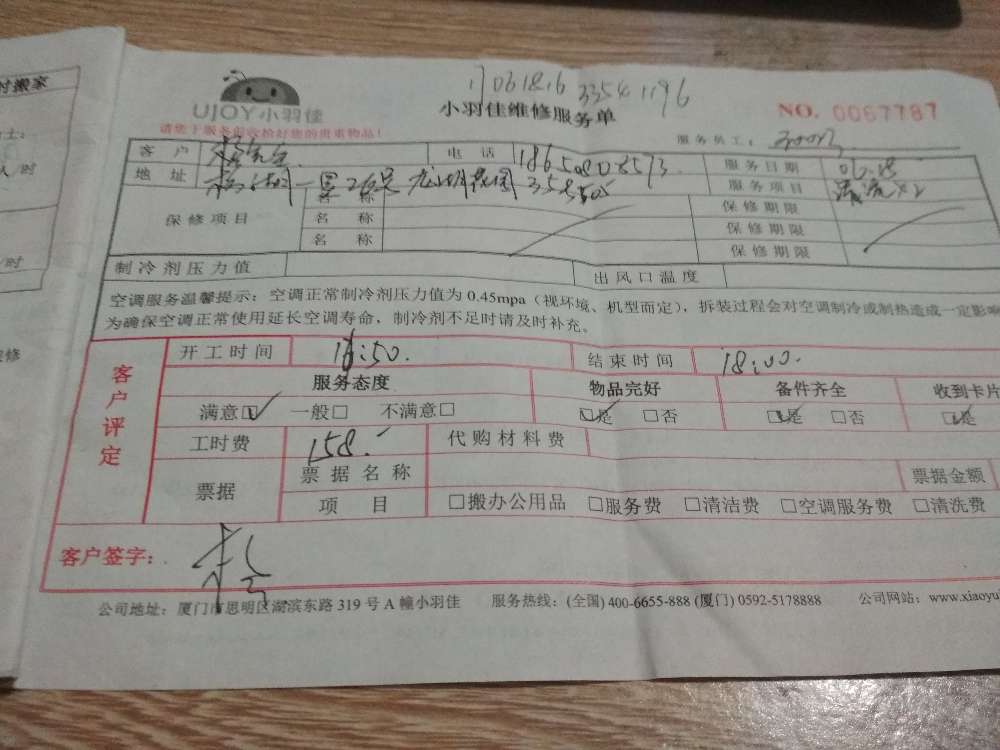 时搬家
士：
人/时
/时
修
UJOY小羽佳
请您于服务前收拾好您的贵重物品！
17061816 33541196
小羽佳维修服务单
NO. 0067787
服务员工：
客户 电话 18650808573 服务日期 06.18
地址 服务项目
保修项目 名称 保修期限
名称 保修期限
名称 保修期限
制冷剂压力值 出风口温度
空调服务温馨提示：空调正常制冷剂压力值为 0.45mpa（视环境、机型而定），拆装过程会对空调制冷或制热造成一定影响
为确保空调正常使用延长空调寿命，制冷剂不足时请及时补充。
客户评定
开工时间 16:50. 结束时间 18:00.
服务态度 物品完好 备件齐全 收到卡片
满意☑ 一般□ 不满意□ ☑是 □否 ☑是 □否 ☑是
工时费 158.- 代购材料费
票据 票据名称 票据金额
项目 □搬办公用品 □服务费 □清洁费 □空调服务费 □清洗费
客户签字：
公司地址：厦门市思明区湖滨东路 319 号 A 幢小羽佳 服务热线：(全国) 400-6655-888 (厦门) 0592-5178888 公司网站：www.xiaoyu